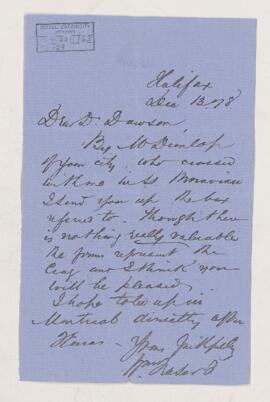 Halifax
Dec 13. 78
Dear Dr. Dawson
By Mr Dunlap
of your city, who crossed
with me in SS Moravian
I send you up the box
referred to. Though there
is nothing really valuable
the forms represent the
and I think you
will be pleased.
I hope to be up in
Montreal directly after
Yours faithfully